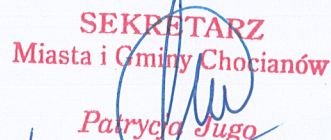 SEKRETARZ
Miasta i Gminy Chocianów
Patrycja Jugo